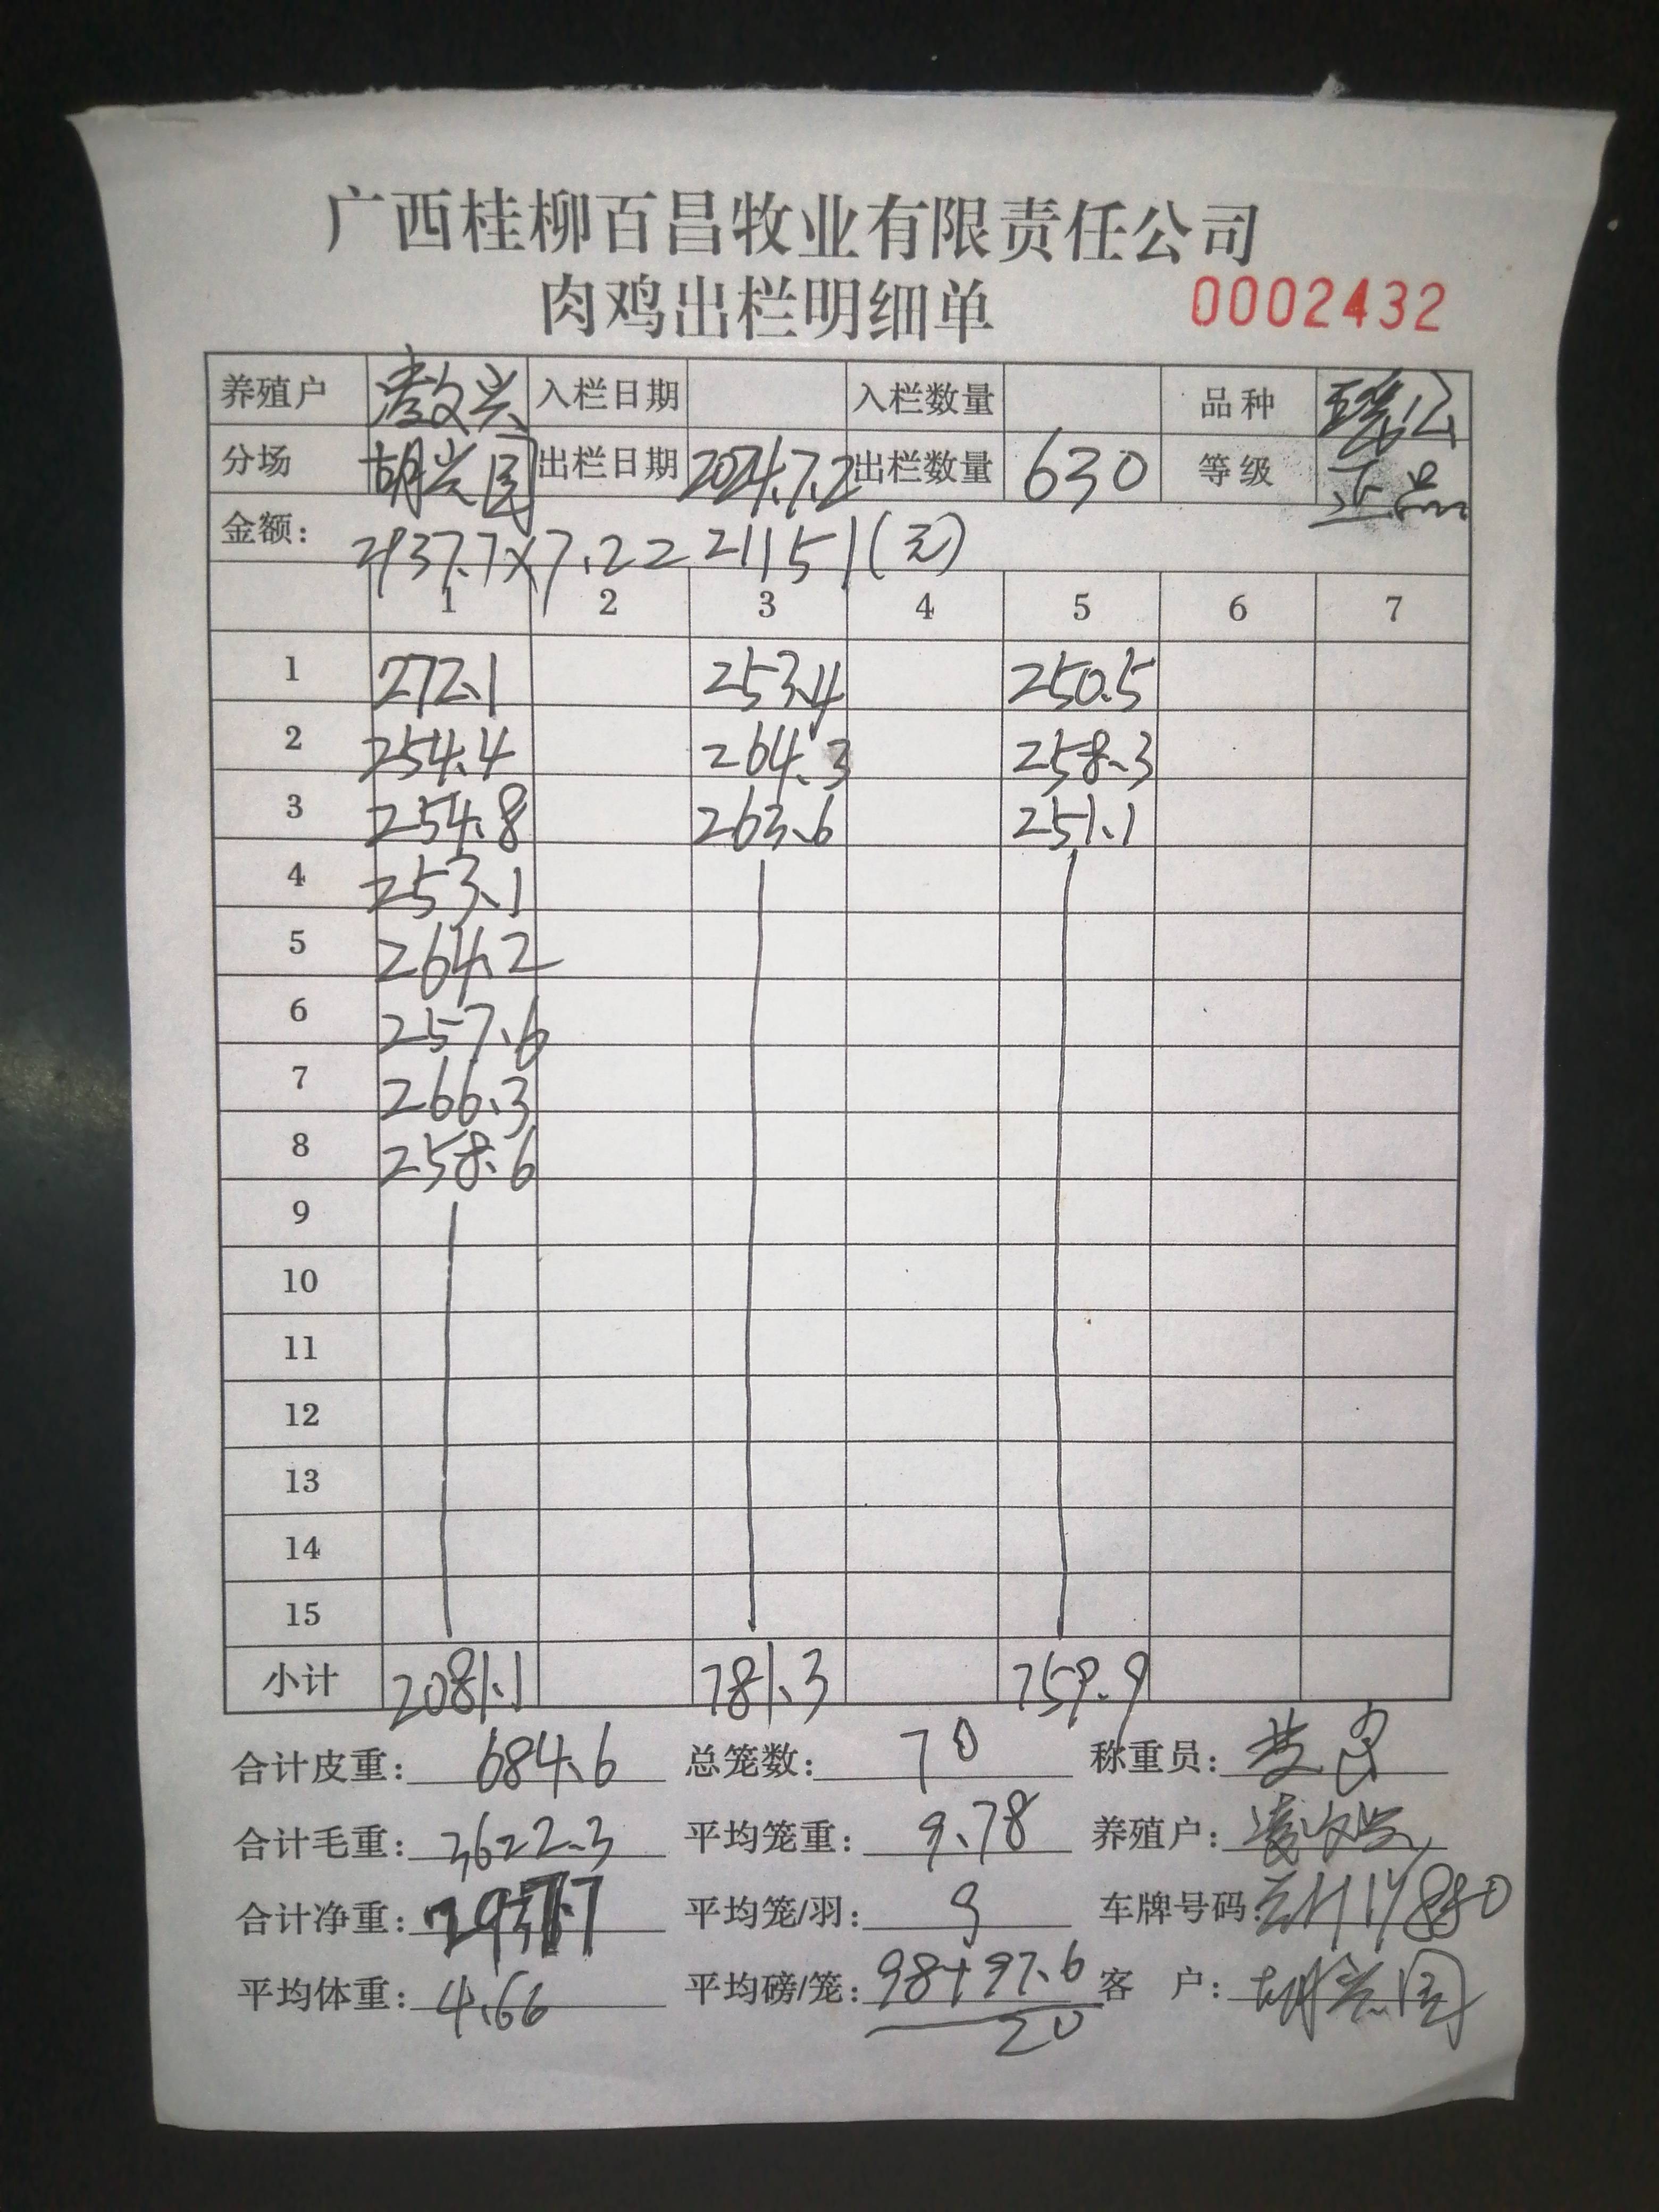 广西桂柳百昌牧业有限责任公司
肉鸡出栏明细单 0002432
养殖户 入栏日期 入栏数量 品种 瑶公
分场 胡兴国 出栏日期 2024.7.2 出栏数量 630 等级 正品
金额: 2937.7×7.2=21151(元)
1 2 3 4 5 6 7
1 272.1 253.4 250.5
2 254.4 264.3 258.3
3 254.8 263.6 251.1
4 253.1
5 264.2
6 257.6
7 266.3
8 258.6
9
10
11
12
13
14
15
小计 2081.1 781.3 759.9
合计皮重: 684.6 总笼数: 70 称重员:
合计毛重: 3622.3 平均笼重: 9.78 养殖户:
合计净重: 2937.7 平均笼/羽: 9 车牌号码:
平均体重: 4.66 平均磅/笼: 98+97.6 客 户: 胡兴国
20